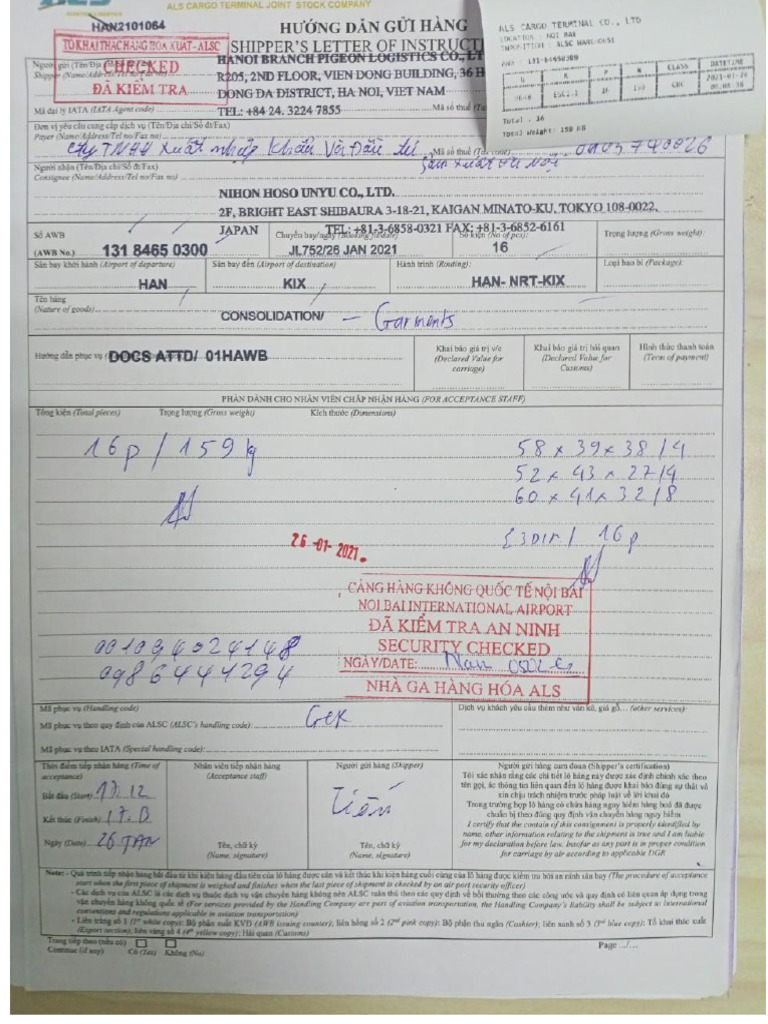 ALS CARGO TERMINAL JOINT STOCK COMPANY
HAN2101064
HƯỚNG DẪN GỬI HÀNG
SHIPPER'S LETTER OF INSTRUCTI
TỜ KHAI THÁC HÀNG HÓA XUẤT - ALSC
CHECKED
ĐÃ KIỂM TRA
ALS CARGO TERMINAL CO., LTD
LOCATION : NOI BAI
CLASS DATETIME
Total : 16
Total Weight: 159 KG
Người gửi (Tên/Địa chỉ/
Shipper (Name/Address/Tel no/Fax no)
HANOI BRANCH PIGEON LOGISTICS CO., LT
R205, 2ND FLOOR, VIEN DONG BUILDING, 36 H
DONG DA DISTRICT, HA NOI, VIET NAM
Mã đại lý IATA (IATA Agent code)
TEL: +84 24. 3224 7855
Mã số thuế (Ta
Đơn vị yêu cầu cung cấp dịch vụ (Tên/Địa chỉ/Số đt/Fax)
Payer (Name/Address/Tel no/Fax no)
Cty TNHH Xuất nhập khẩu Và Đầu tư
Mã số thuế
Người nhận (Tên/Địa chỉ/Số đt/Fax)
Consignee (Name/Address/Tel no/Fax no)
NIHON HOSO UNYU CO., LTD.
2F, BRIGHT EAST SHIBAURA 3-18-21, KAIGAN MINATO-KU, TOKYO 108-0022,
JAPAN TEL: +81-3-6858-0321 FAX: +81-3-6852-6161
Số AWB
(AWB No.)
131 8465 0300
Chuyến bay/ngày
JL752/26 JAN 2021
Số kiện (No of pcs):
16
Trọng lượng (Gross weight):
Sân bay khởi hành (Airport of departure)
HAN
Sân bay đến (Airport of destination)
KIX
Hành trình (Routing):
HAN- NRT-KIX
Loại bao bì (Package):
Tên hàng
(Nature of goods)
CONSOLIDATION/ — Garments
Hướng dẫn phục vụ
DOCS ATTD/ 01HAWB
Khai báo giá trị v/c
(Declared Value for
carriage)
Khai báo giá trị hải quan
(Declared Value for
Customs)
Hình thức thanh toán
(Term of payment)
PHẦN DÀNH CHO NHÂN VIÊN CHẤP NHẬN HÀNG (FOR ACCEPTANCE STAFF)
Tổng kiện (Total pieces) Trọng lượng (Gross weight) Kích thước (Dimensions)
16p / 159 kg
58 x 39 x 38 / 4
52 x 43 x 27 / 4
60 x 41 x 32 / 8
16p
26-01-2021
CẢNG HÀNG KHÔNG QUỐC TẾ NỘI BÀI
NOI BAI INTERNATIONAL AIRPORT
ĐÃ KIỂM TRA AN NINH
SECURITY CHECKED
NGÀY/DATE:
NHÀ GA HÀNG HÓA ALS
001094024148
0986441294
Mã phục vụ (Handling code)
Mã phục vụ theo quy định của ALSC (ALSC's handling code):
Mã phục vụ theo IATA (Special handling code):
Dịch vụ khách yêu cầu thêm như vân kê, giá gỗ... (other services):
Thời điểm tiếp nhận hàng (Time of
acceptance)
Bắt đầu (Start) 17.12
Kết thúc (Finish)
Ngày (Date)
Nhân viên tiếp nhận hàng
(Acceptance staff)
Tên, chữ ký
(Name, signature)
Người gửi hàng (Shipper)
Tiến
Tên, chữ ký
(Name, signature)
Người gửi hàng cam đoan (Shipper's certification)
Tôi xác nhận rằng các chi tiết lô hàng này được xác định chính xác theo
tên gọi, các thông tin liên quan đến lô hàng được khai báo đúng sự thật và
xin chịu trách nhiệm trước pháp luật về lời khai đó
Trong trường hợp lô hàng có chứa hàng nguy hiểm hàng hoá đã được
chuẩn bị theo đúng quy định vận chuyển hàng nguy hiểm
I certify that the contain of this consignment is properly identified by
name, other information relating to the shipment is true and I am liable
for my declaration before law. Insofar as any part is in proper condition
for carriage by air according to applicable DGR
Note: - Quá trình tiếp nhận hàng bắt đầu từ khi kiện hàng đầu tiên của lô hàng được cân và kết thúc khi kiện hàng cuối cùng của lô hàng được kiểm tra bởi an ninh sân bay (The procedure of acceptance
start when the first piece of shipment is weighed and finishes when the last piece of shipment is checked by an airport security officer)
- Các dịch vụ của ALSC là các dịch vụ thuộc dịch vụ vận chuyển hàng không nên ALSC tuân thủ theo các quy định về bồi thường theo các công ước và quy định có liên quan áp dụng trong
vận chuyển hàng không quốc tế (For services provided by the Handling Company are part of aviation transportation, the Handling Company's liability shall be subject to international
conventions and regulations applicable in aviation transportation)
- Liên trắng số 1 (1st white copy): Bộ phận xuất KVĐ (AWB issuing counter); liên hồng số 2 (2nd pink copy): Bộ phận thu ngân (Cashier); liên xanh số 3 (3rd blue copy): Tổ khai thác xuất
(Export section), liên vàng số 4 (4th yellow copy): Hải quan (Customs)
Trang tiếp theo (nếu có)
Continue (if any) Có (Yes) Không (No)
Page .../...